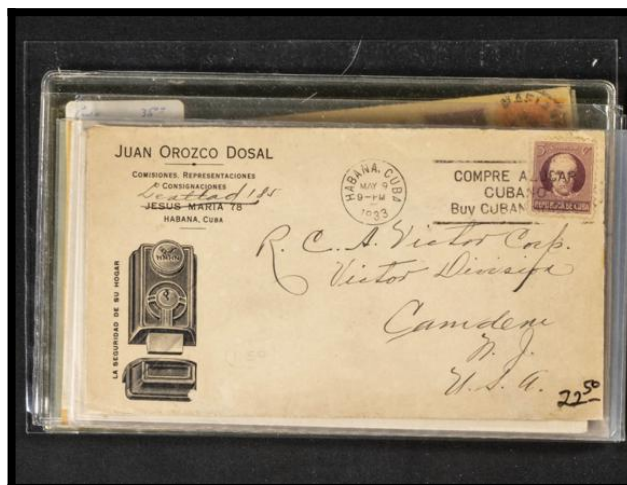 JUAN OROZCO DOSAL
COMISIONES, REPRESENTACIONES
Y CONSIGNACIONES
185
JESUS MARIA 78
HABANA, CUBA
LA SEGURIDAD DE SU HOGAR
HABANA, CUBA
MAY 9
9-PM
1933
COMPRE AZUCAR
CUBANO
BUY CUBAN
R. C. A. Victor Corp.
Victor Division
Camden
N. J.
U. S. A.
22 50